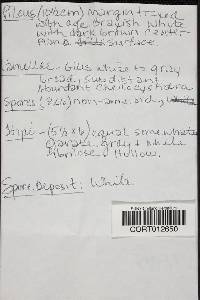 Pileus (10x5cm) margin
with age Grayish white
with dark brown center
surface.
Lamellae - Gills white to gray
broad, subdistant
Abundant Cheilocystidia
Spores (8x6) non-amyloid white
Stipe - (5½ x 6) equal somewhat
gray + white
fibrillose Hollow.
Spore Deposit: White
CORT012650